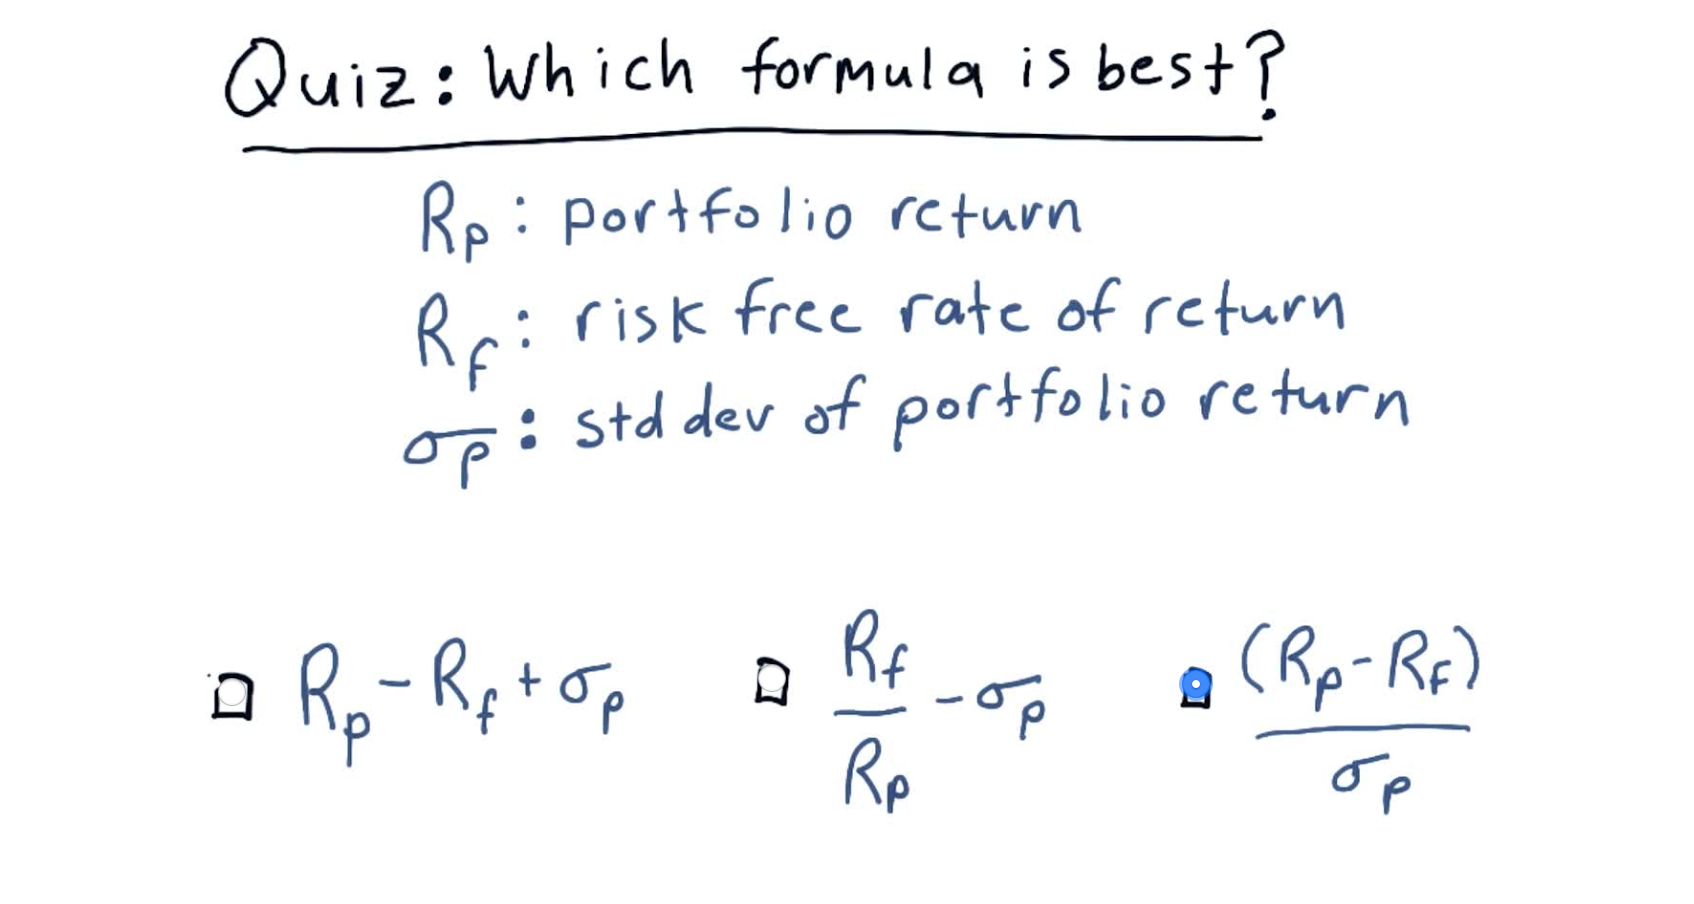 Quiz: Which formula is best?
Rp: portfolio return
Rf: risk free rate of return
σp: std dev of portfolio return
Rp - Rf + σp
Rf/Rp - σp
(Rp - RF)/σp